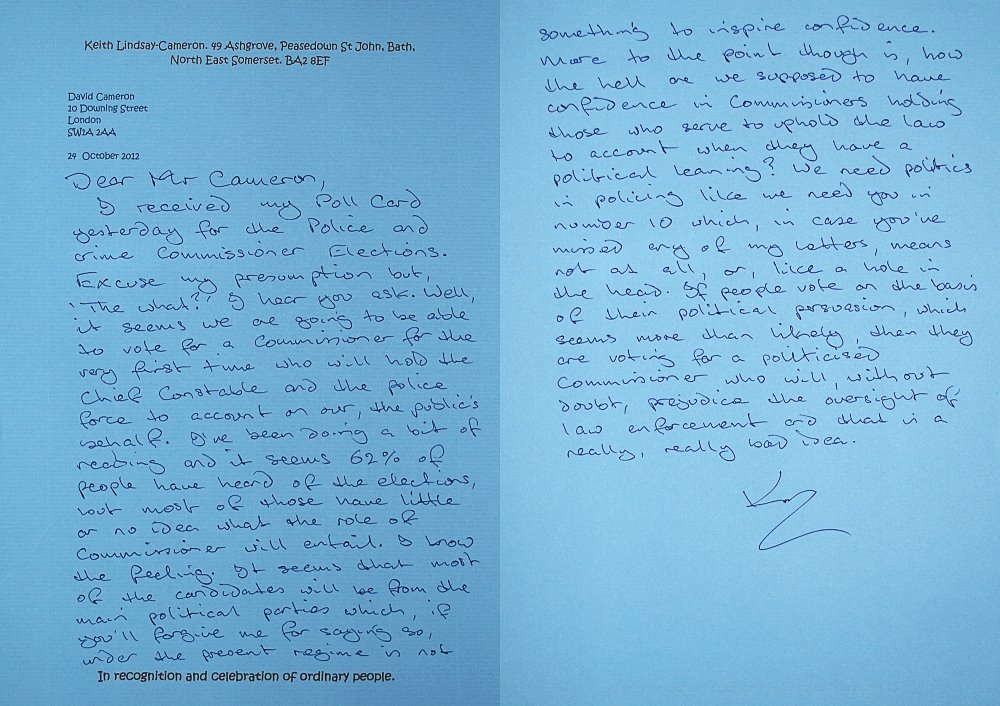 Keith Lindsay-Cameron. 49 Ashgrove, Peasedown St John, Bath,
North East Somerset. BA2 8EF
David Cameron
10 Downing Street
London
SW1A 2AA
24 October 2012
Dear Mr Cameron,
I received my Poll Card
yesterday for the Police and
crime Commissioner Elections.
Excuse my presumption but,
'The what?' I hear you ask. Well,
it seems we are going to be able
to vote for a Commissioner for the
very first time who will hold the
Chief Constable and the police
force to account on our, the public's
behalf. I've been doing a bit of
reading and it seems 62% of
people have heard of the elections,
but most of those have little
or no idea what the role of
Commissioner will entail. I know
the feeling. It seems that most
of the candidates will be from the
main political parties which, if
you'll forgive me for saying so,
under the present regime is not
In recognition and celebration of ordinary people.
something to inspire confidence.
More to the point though is, how
the hell are we supposed to have
confidence in Commissioners holding
those who serve to uphold the law
to account when they have a
political leaning? We need politics
in policing like we need you in
number 10 which, in case you've
missed any of my letters, means
not at all, or, like a hole in
the head. If people vote on the basis
of their political persuasion, which
seems more than likely, then they
are voting for a politicised
Commissioner who will, without
doubt, prejudice the oversight of
law enforcement and that is a
really, really bad idea.